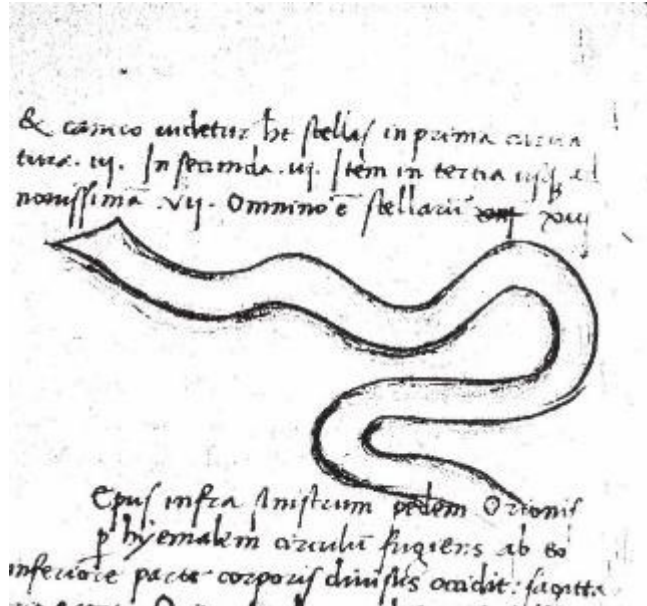 & camco uidetur ht stellas in prima curua
tura. iij. In secunda. iij. Item in tertia usq; ad
nouissimā. vij. Omnino ē stellarū xiij
Epus infra sinistrum pedem Orionis
p hyemalem circulū fugiens ab eo
inferiore parte corporis diuisus occidit: sagitta